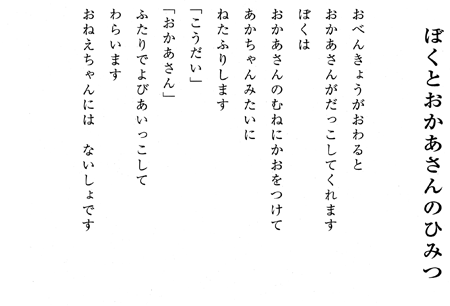 ぼくとおかあさんのひみつ
おべんきょうがおわると
おかあさんがだっこしてくれます
ぼくは
おかあさんのむねにかおをつけて
あかちゃんみたいに
ねたふりします
「こうだい」
「おかあさん」
ふたりでよびあいっこして
わらいます
おねえちゃんには　ないしょです